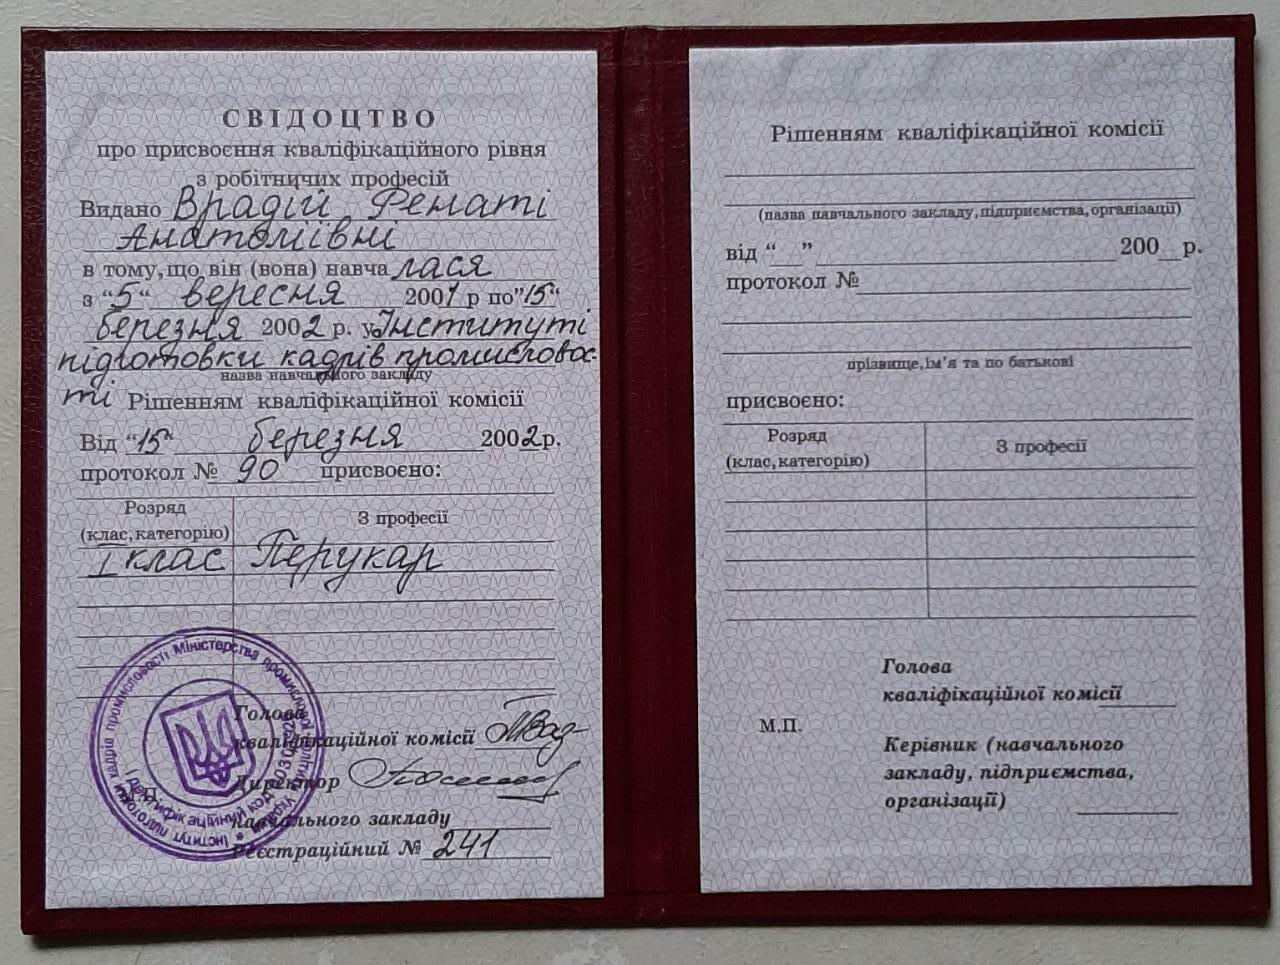 СВІДОЦТВО
про присвоєння кваліфікаційного рівня
з робітничих професій
Видано Врадій Ренаті
Анатоліївні
в тому, що він (вона) навча лася
з "5" вересня 2001 р по "15"
березня 2002 р. у Інституті
підготовки кадрів промисловос-
назва навчального закладу
ті Рішенням кваліфікаційної комісії
Від "15" березня 2002р.
протокол № 90 присвоєно:
Розряд
(клас, категорію) З професії
I клас Перукар
Голова
кваліфікаційної комісії
Директор
навчального закладу
М.П.
Реєстраційний № 241
Міністерства промислової політики України * Інститут підготовки кадрів промисловості
Ідентифікаційний код
Рішенням кваліфікаційної комісії
(назва навчального закладу, підприємства, організації)
від "__" 200__р.
протокол №
прізвище, ім'я та по батькові
присвоєно:
Розряд
(клас, категорію) З професії
Голова
кваліфікаційної комісії
М.П.
Керівник (навчального
закладу, підприємства,
організації)